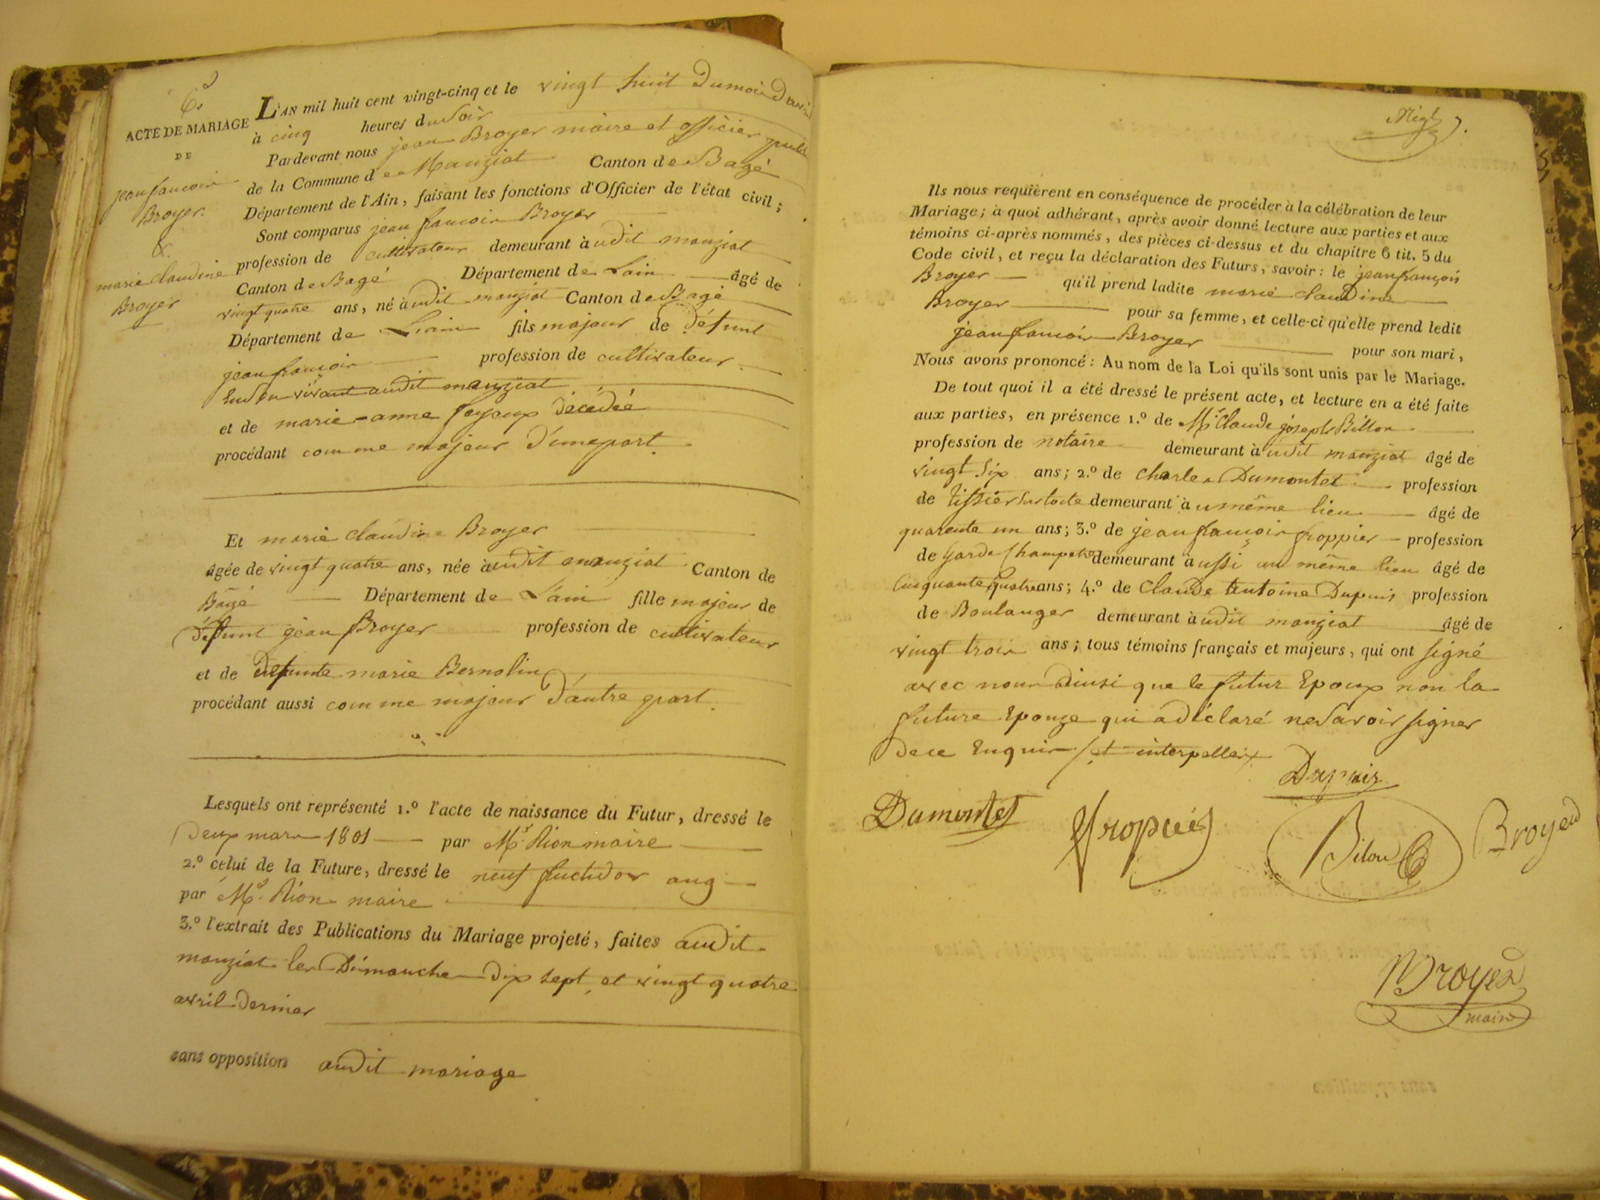 6.e
ACTE DE MARIAGE
DE
jean francois
Broyer.
&
marie claudine
Broyer
L'AN mil huit cent vingt-cinq et le vingt huit du mois d'avril
à cinq heures du soir
Pardevant nous jean Broyer maire et officier public
de la Commune de Manziat Canton de Bagé
Département de l'Ain, faisant les fonctions d'Officier de l'état civil;
Sont comparus jean francois Broyer
profession de cultivateur demeurant audit manziat
Canton de Bagé Département de Lain âgé de
vingt quatre ans, né audit manziat Canton de Bagé
Département de Lain fils majeur de défunt
jean francois profession de cultivateur
de son vivant audit manziat
et de marie-anne foyoux décédée
procédant comme majeur d'une part.
Et marie claudine Broyer
âgée de vingt quatre ans, née audit manziat Canton de
Bagé Département de Lain fille majeur de
défunt jean Broyer profession de cultivateur
et de défunte marie Bernolin
procédant aussi comme majeur d'autre part.
Lesquels ont représenté 1.º l'acte de naissance du Futur, dressé le
deux mars 1801 par Mr. Rion maire
2.º celui de la Future, dressé le neuf fructidor an 9
par Mr. Rion maire
3.º l'extrait des Publications du Mariage projeté, faites audit
manziat les Dimanche dix sept et vingt quatre
avril dernier
sans opposition audit mariage
Ils nous requièrent en conséquence de procéder à la célébration de leur
Mariage; à quoi adhérant, après avoir donné lecture aux parties et aux
témoins ci-après nommés, des pièces ci-dessus et du chapitre 6 tit. 5 du
Code civil, et reçu la déclaration des Futurs, savoir: le jean françois
Broyer qu'il prend ladite marie claudine
Broyer pour sa femme, et celle-ci qu'elle prend ledit
jean francois Broyer pour son mari,
Nous avons prononcé: Au nom de la Loi qu'ils sont unis par le Mariage.
De tout quoi il a été dressé le présent acte, et lecture en a été faite
aux parties, en présence 1.º de Mr Claude joseph Billon
profession de notaire demeurant audit manziat âgé de
vingt six ans; 2.º de Charles Dumontet profession
de tissier sur toile demeurant au même lieu âgé de
quarente un ans; 3.º de jean francois froppier profession
de garde champetre demeurant aussi au même lieu âgé de
Cinquante quatre ans; 4.º de Claude antoine Dupuis profession
de Boulanger demeurant audit manziat âgé de
vingt trois ans; tous témoins français et majeurs, qui ont signé
avec nous ainsi que le futur Epoux non la
future Epouze qui a déclaré ne savoir signer
de ce Enquis et interpellée
Dupuis
Dumontet
Bilon
Broyer
Broyer
maire